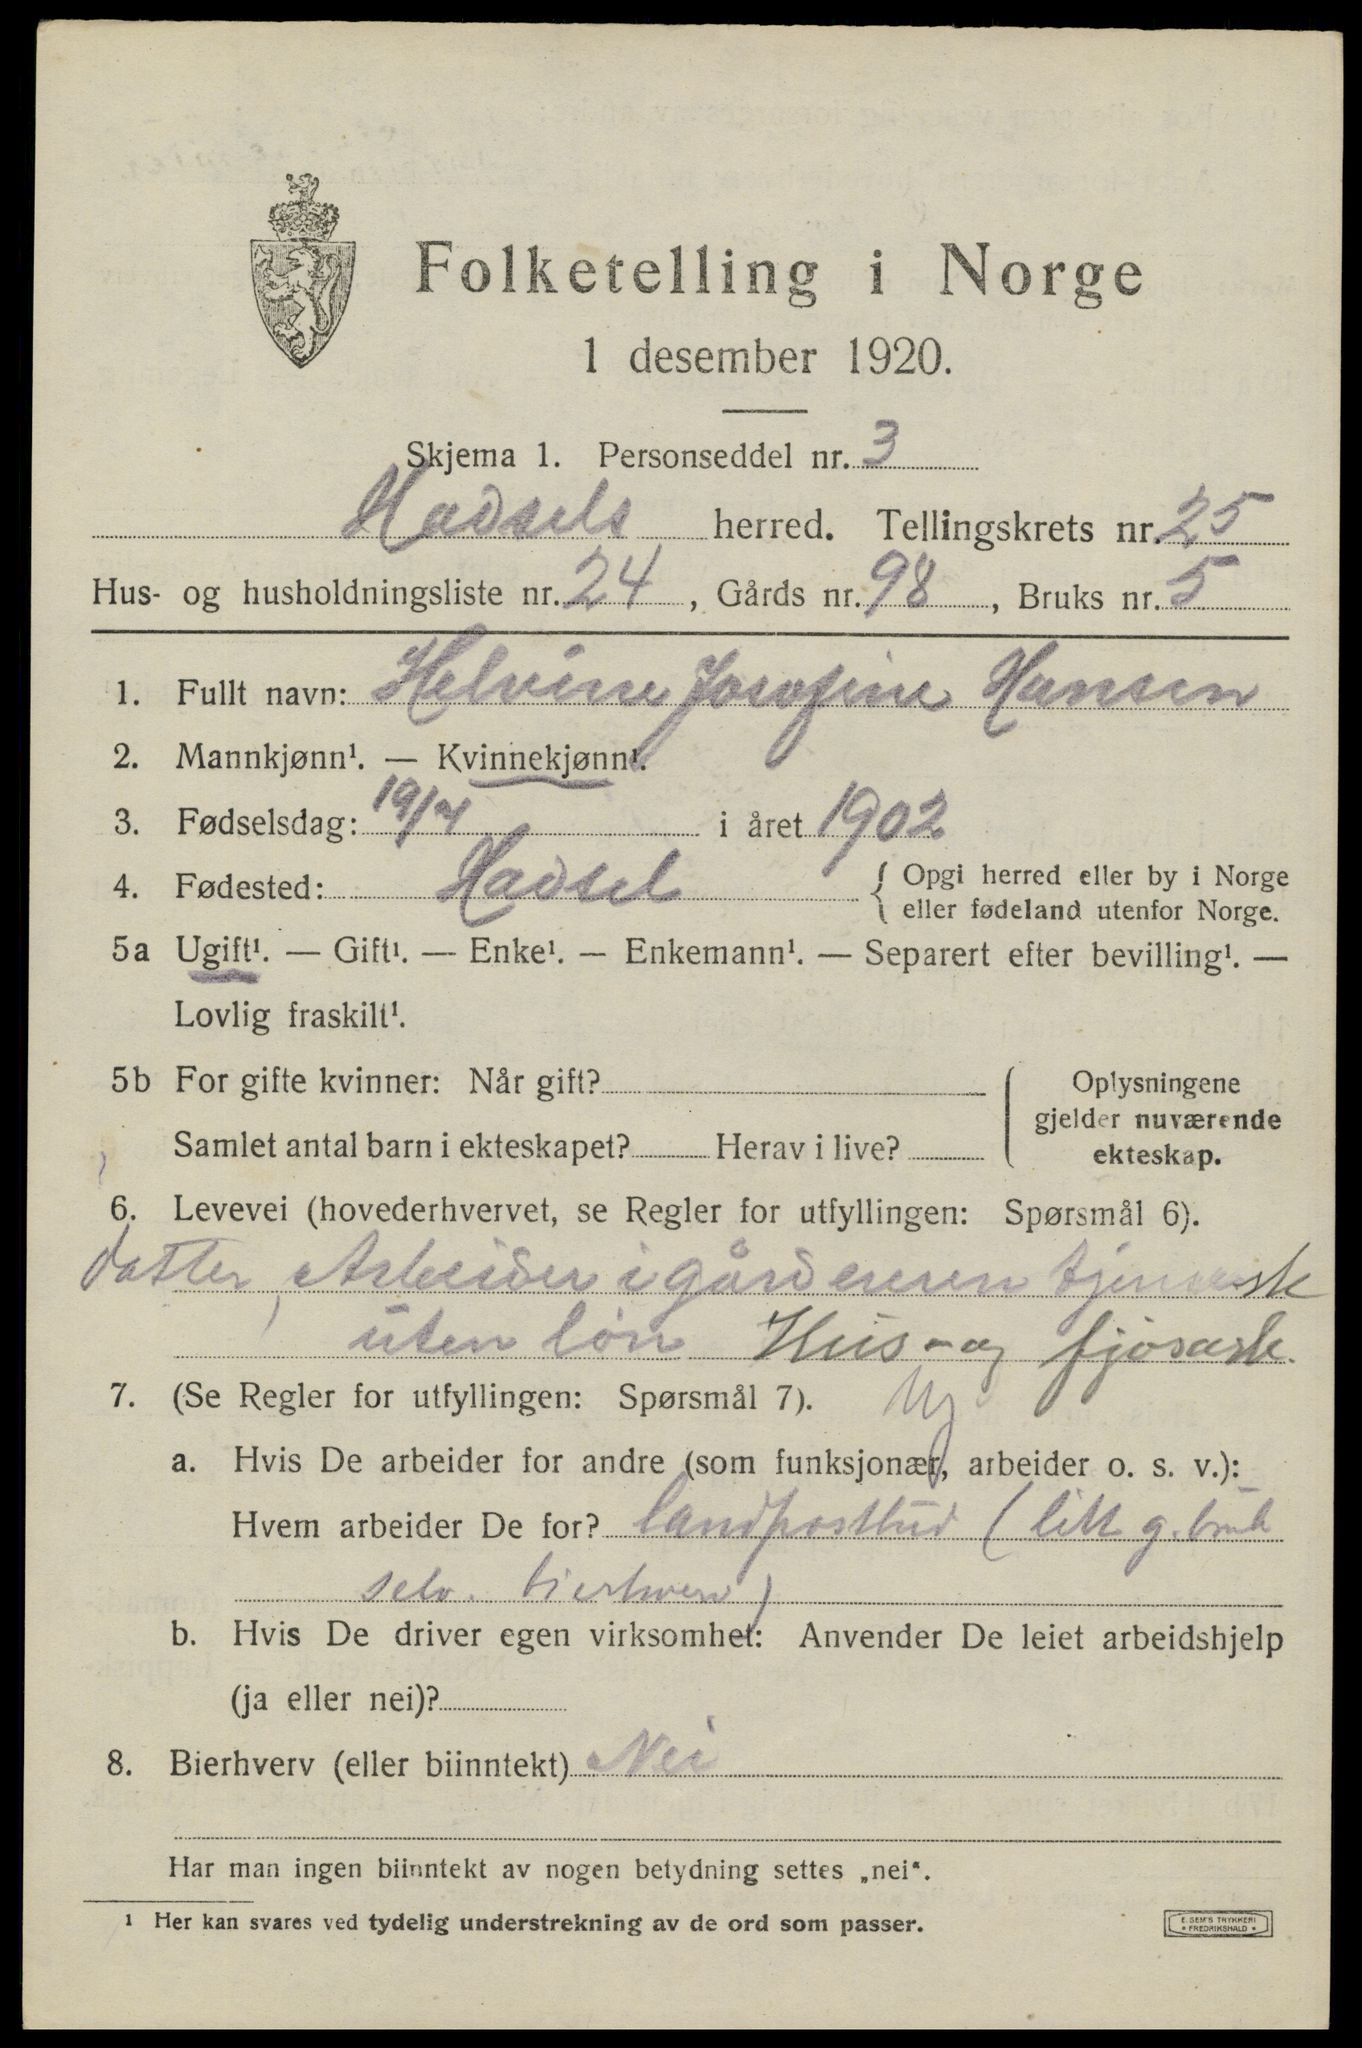 Folketelling i Norge
1 desember 1920.
Skjema 1. Personseddel nr. 3
Hadsels herred. Tellingskrets nr. 25
Hus- og husholdningsliste nr. 24, Gårds nr. 98, Bruks nr. 5
1. Fullt navn: Helvine Josefine Hansen
2. Mannkjønn¹. — Kvinnekjønn¹.
3. Fødselsdag: 19/4 i året 1902
4. Fødested: Hadsel { Opgi herred eller by i Norge
eller fødeland utenfor Norge.
5a Ugift¹. — Gift¹. — Enke¹. — Enkemann¹. — Separert efter bevilling¹. —
Lovlig fraskilt¹.
5b For gifte kvinner: Når gift?
Samlet antal barn i ekteskapet? Herav i live?
Oplysningene
gjelder nuværende
ekteskap.
6. Levevei (hovederhvervet, se Regler for utfyllingen: Spørsmål 6).
datter, Arbeider i gården
uten løn Hus- og fjøsarb.
7. (Se Regler for utfyllingen: Spørsmål 7).
a. Hvis De arbeider for andre (som funksjonær, arbeider o. s. v.):
Hvem arbeider De for? landpostbud (litt g.bruk
selv. bierhverv)
b. Hvis De driver egen virksomhet: Anvender De leiet arbeidshjelp
(ja eller nei)?
8. Bierhverv (eller biinntekt) Nei
Har man ingen biinntekt av nogen betydning settes „nei“.
¹ Her kan svares ved tydelig understrekning av de ord som passer.
E. SEM'S TRYKKERI
FREDRIKSHALD